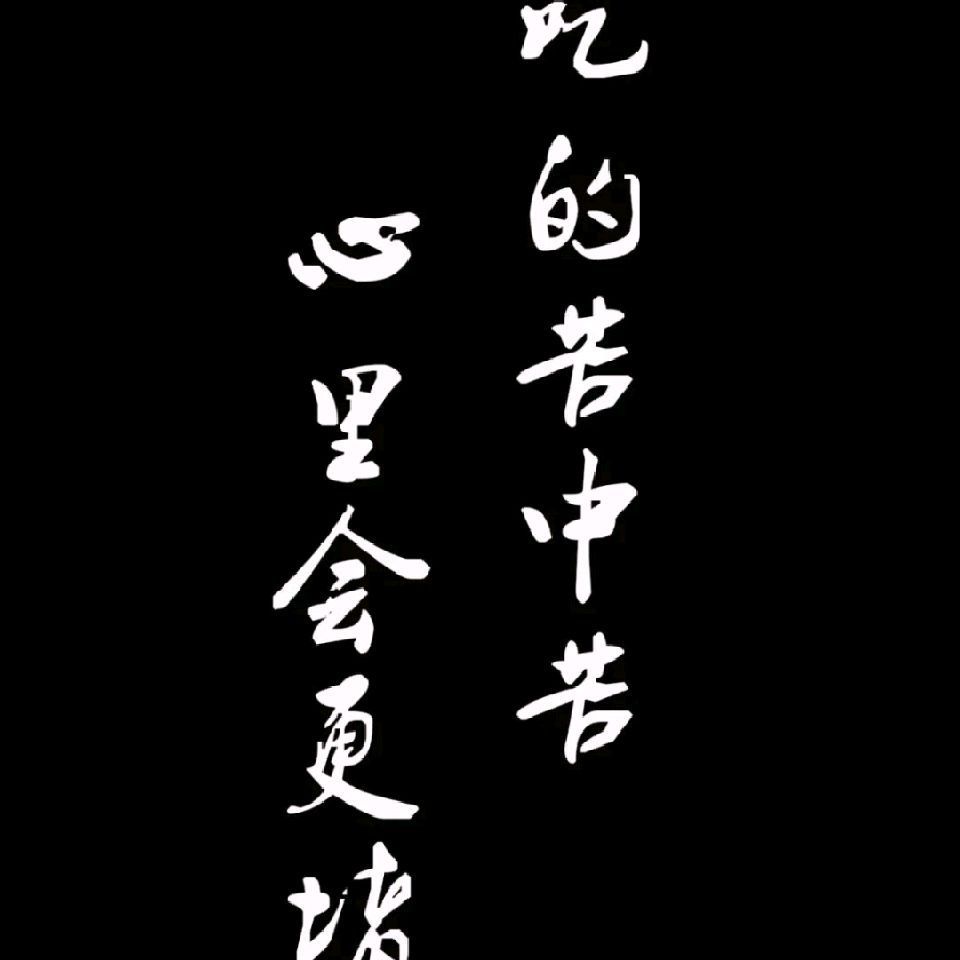 吃的苦中苦
心里会更堵